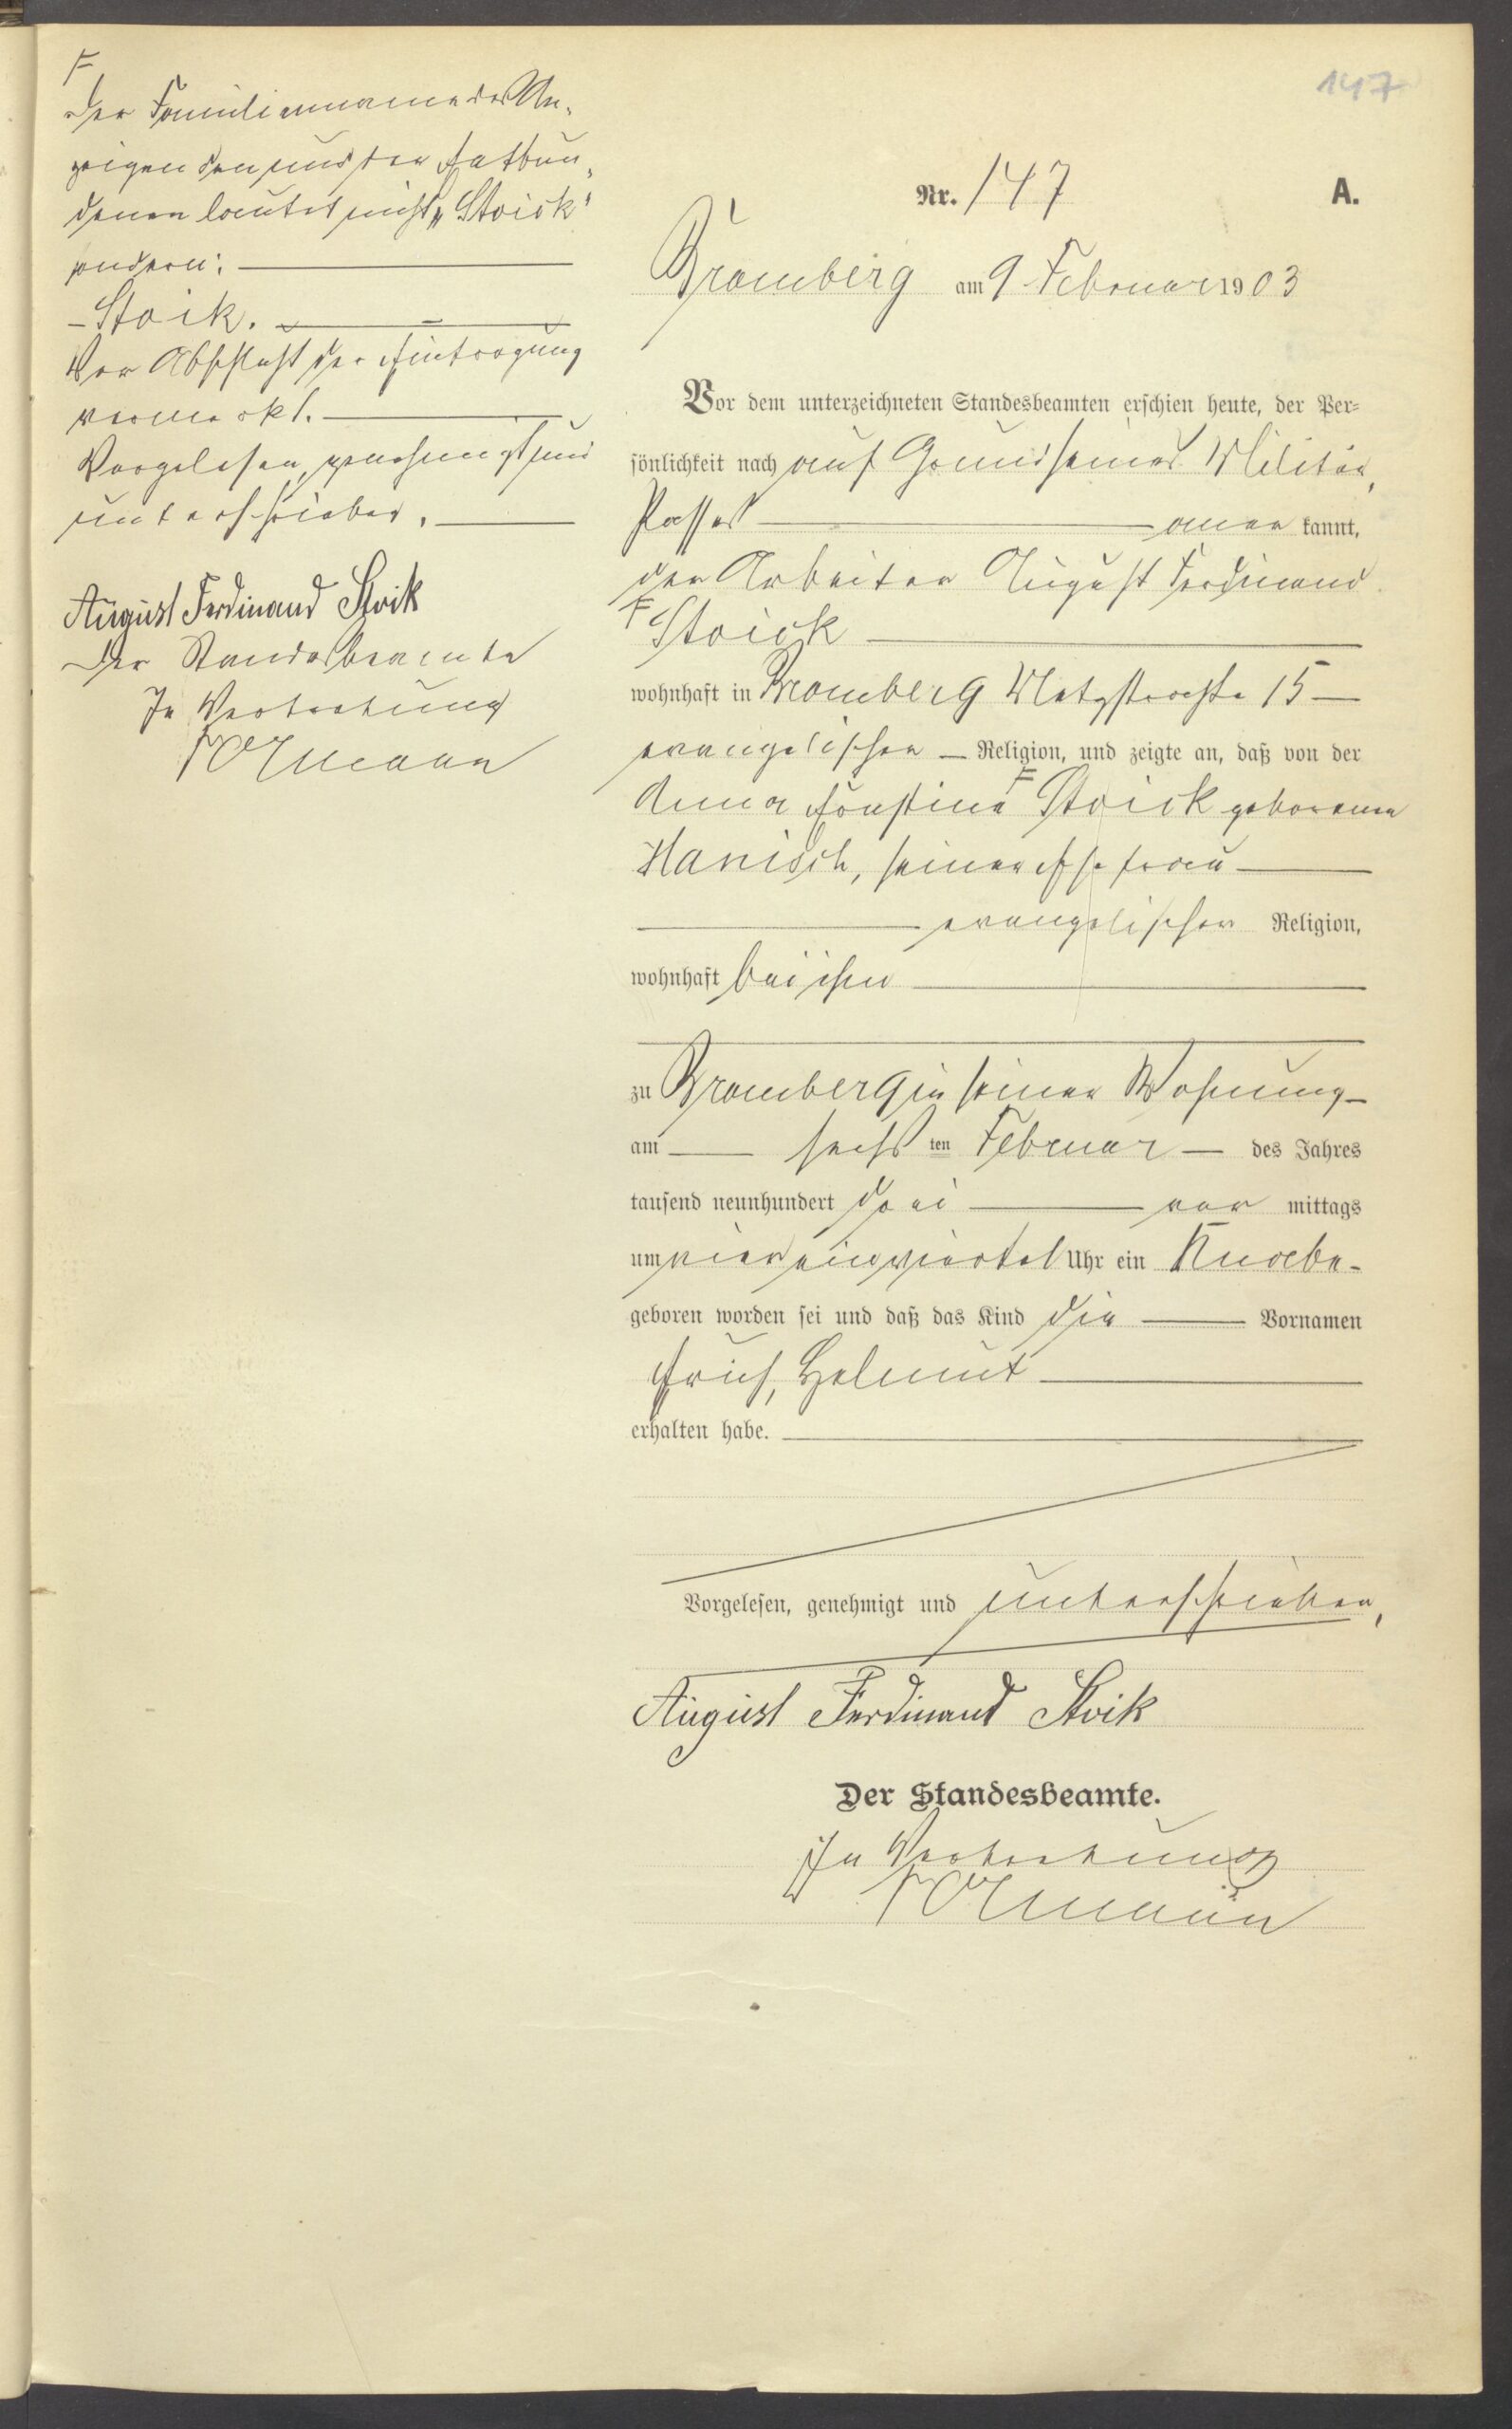 F
Der Familienname des An-
zeigenden und der Entbun-
denen lautet nicht „Stoick"
sondern:
– Stoik. –
Vor Abschluß der Eintragung
vermerkt.
Vorgelesen, genehmigt und
unterschrieben.
August Ferdinand Stoik
Der Standesbeamte
In Vertretung
147
Nr. 147 A.
Bromberg am 9 Februar 1903
Vor dem unterzeichneten Standesbeamten erschien heute, der Per-
sönlichkeit nach auf Grund seines Militär-
Passes aner kannt,
der Arbeiter August Ferdinand
F Stoick
wohnhaft in Bromberg 15
evangelischer Religion, und zeigte an, daß von der
Anna Ernstine F Stoick geborenen
Hanisch, seiner Ehefrau
evangelischer Religion,
wohnhaft bei ihm
zu Bromberg in seiner Wohnung
am sechs ten Februar des Jahres
tausend neunhundert drei vor mittags
um vier einviertel Uhr ein Knabe
geboren worden sei und daß das Kind die Vornamen
Erich, Helmut
erhalten habe.
Vorgelesen, genehmigt und unterschrieben,
August Ferdinand Stoik
Der Standesbeamte.
In Vertretung